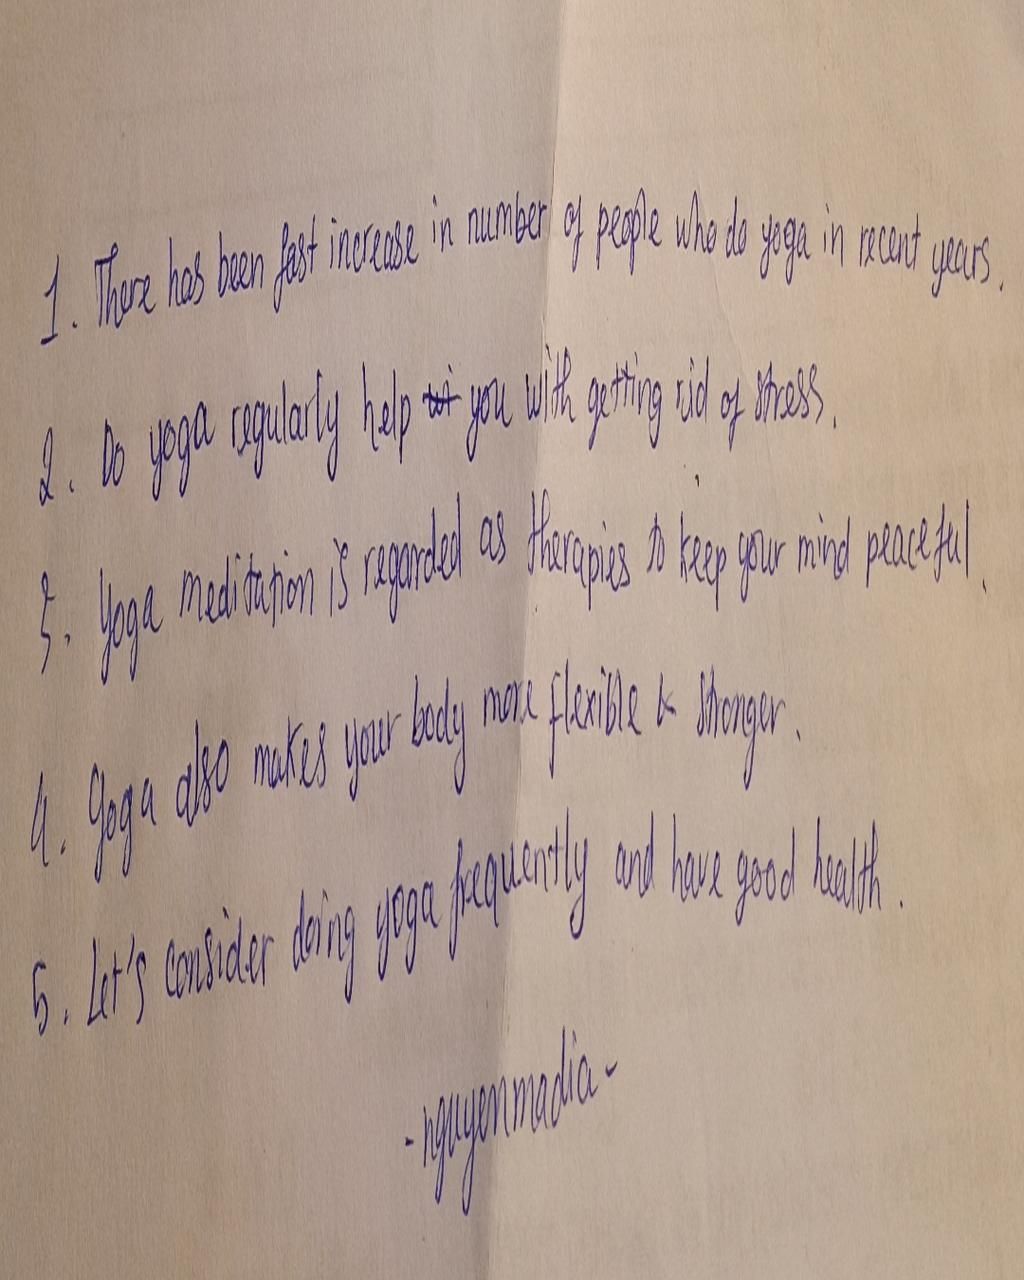 1. There has been fast increase in number of people who do yoga in recent years.
2. Do yoga regularly help you with getting rid of stress.
3. Yoga meditation is regarded as therapies to keep your mind peaceful.
4. Yoga also makes your body more flexible & stronger.
5. Let's consider doing yoga frequently and have good health.
- nguyenmadia -